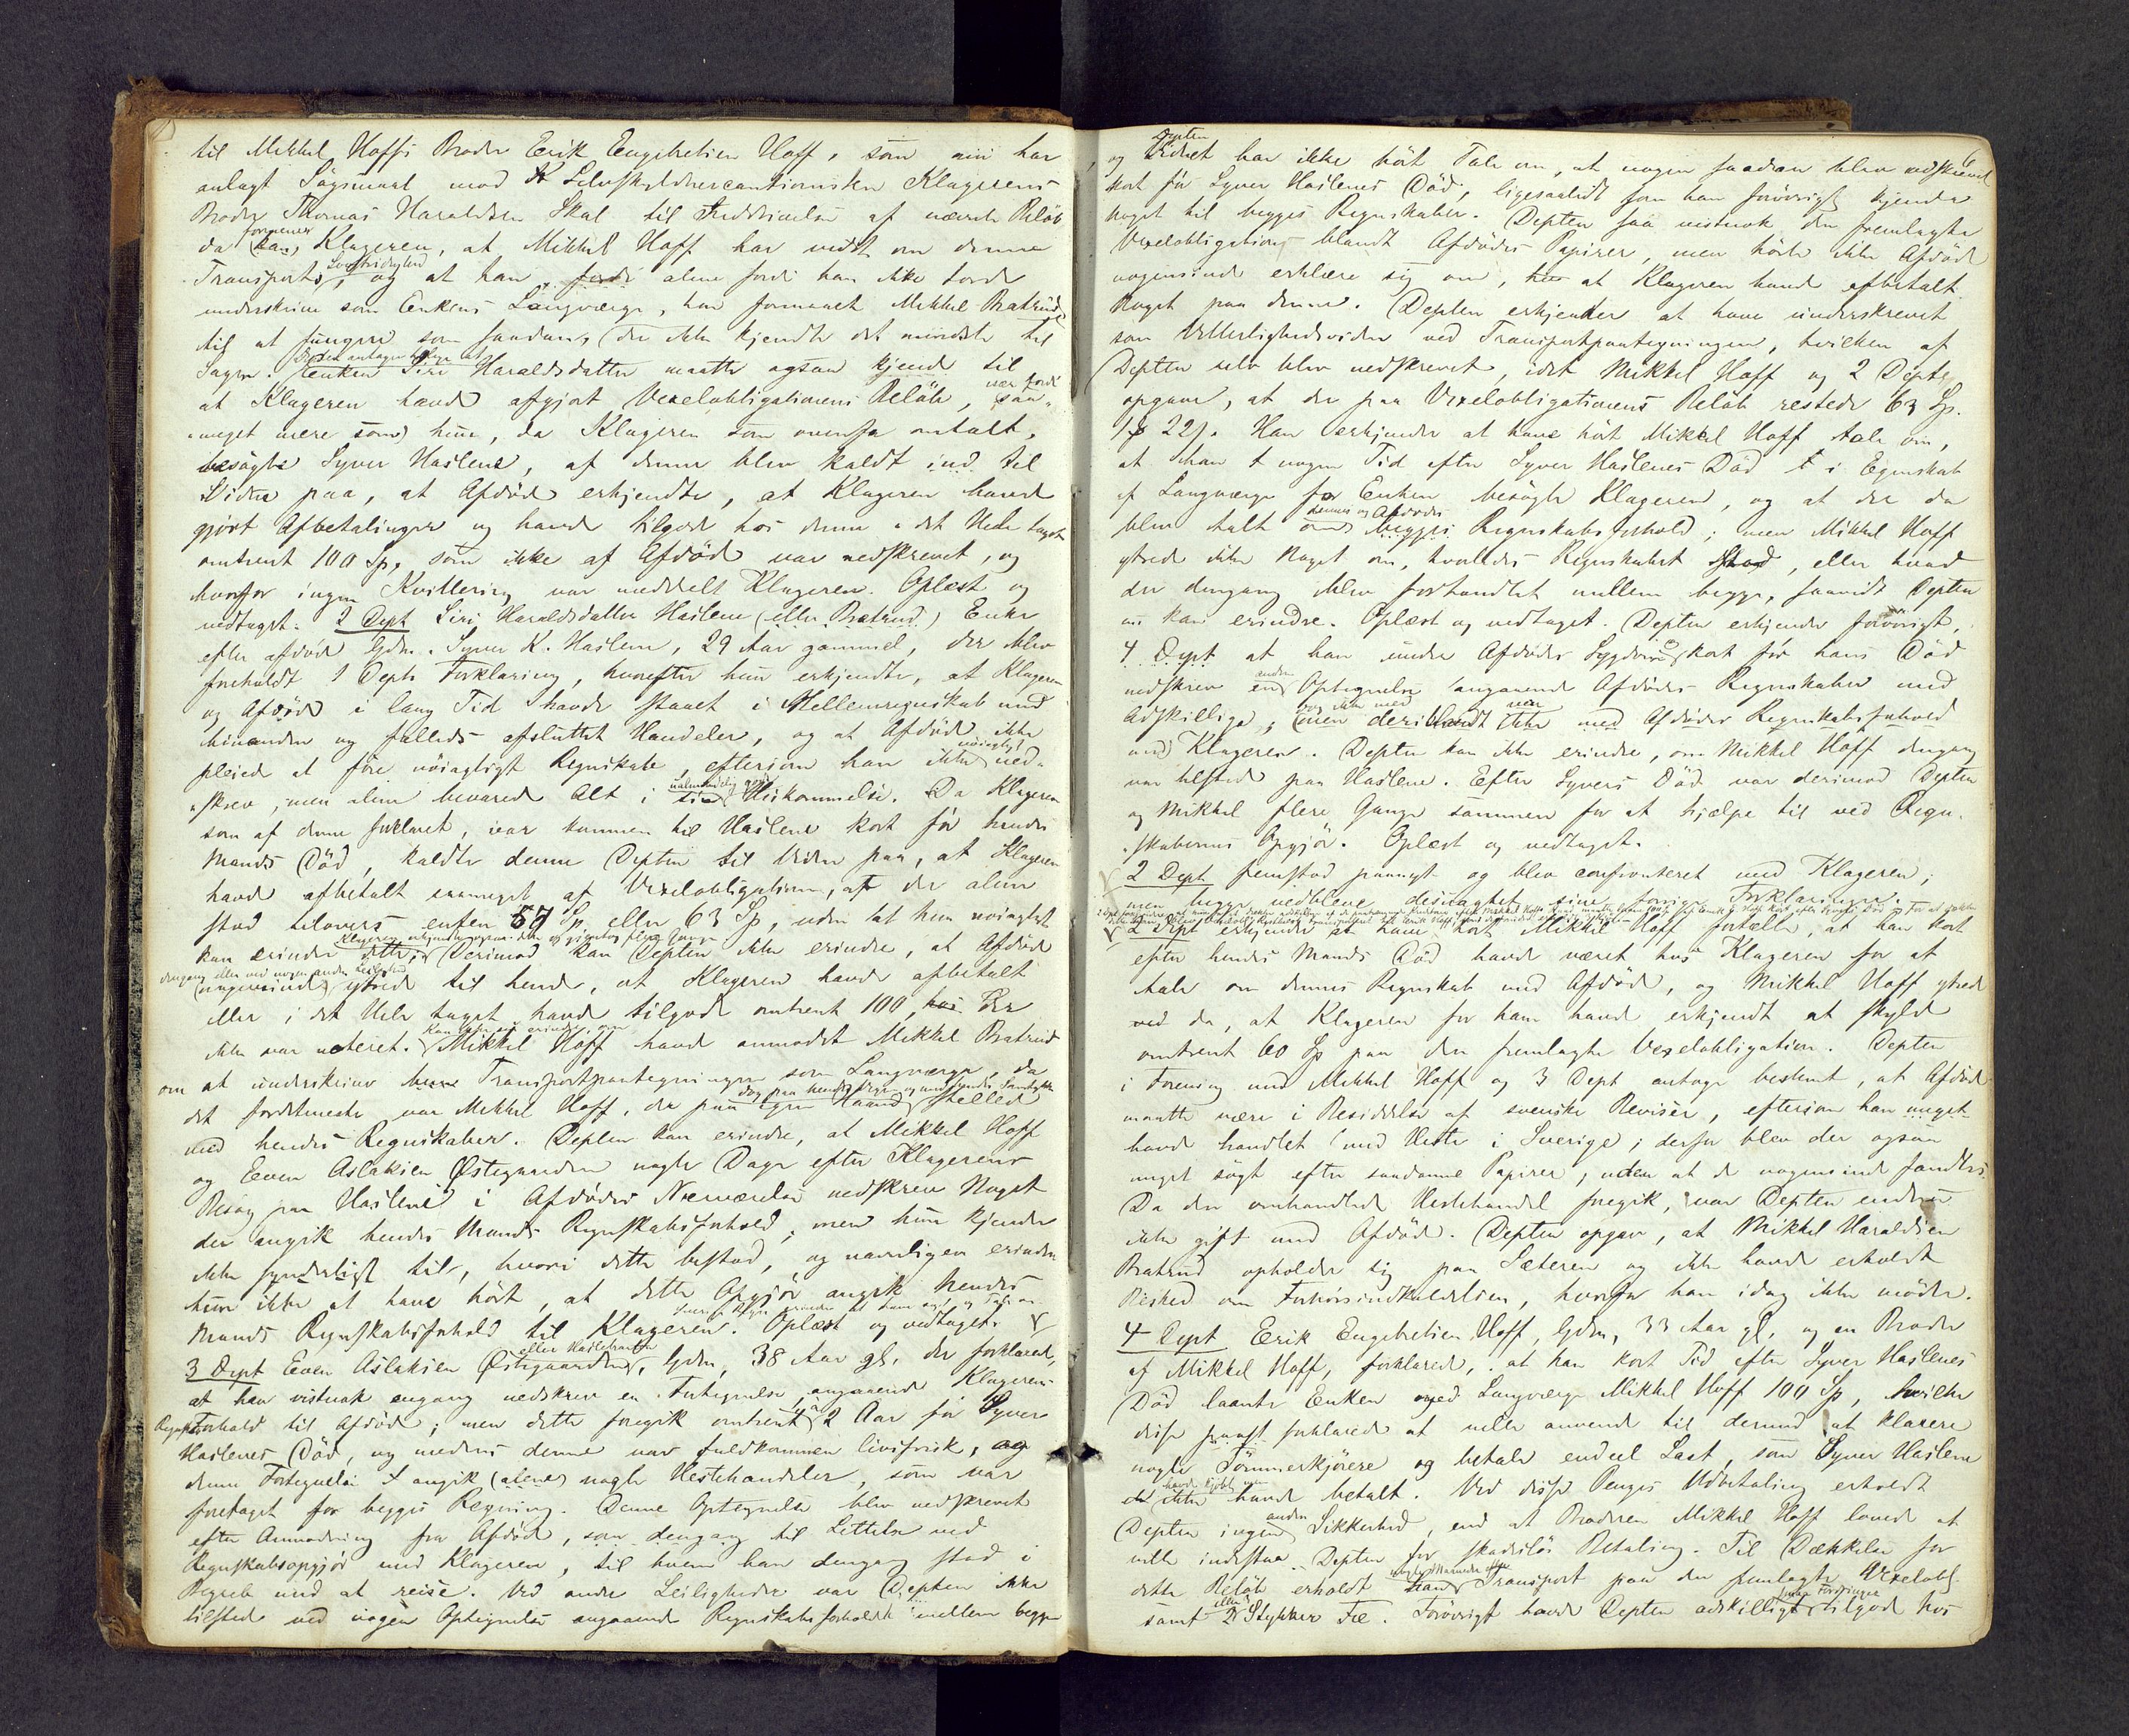 til Mikkel Hoffs Broder Erik Engebretsen Hoff, som nu har
anlagt Søgsmaal mod Selvskyldnercautionisten Klagerens
Broder Thomas Haraldsen Skal til Inddrivelse af nævnte Beløb
da formener Klageren, at Mikkel Hoff har vidst om denne
Transports Lovstridighed, og at han alene fordi han ikke torde
underskrive som Enkens Laugværge, har formaaet Mikkel Bratrud
til at fungere som saadan, der ikke kjendte det mindste til
Sagen. Enken Siri Haraldsdatter maatte ogsaa kjende til
at Klageren havde afgjort Vexelobligationens Beløb, saa-
meget mere som hun, da Klageren som ovenfor omtalt,
besøgte Syver Haslene, af denne blev kaldt ind til
Vidne paa, at Afdøde erkjendte, at Klageren havde
gjort Afbetalinger og havde tilgode hos denne i det Hele taget
omtrent 100 Sp, som ikke af Afdøde var nedskrevet, og
hvorfor ingen Kvittering var meddelt Klageren. Oplæst og
vedtaget. 2 Dept Siri Haraldsdatter Haslene (eller Bratrud) Enke
efter afdøde Gdm. Syver K. Haslene, 29 Aar gammel, der blev
foreholdt 1 Depts Forklaring, hvorefter hun erkjendte, at Klageren
og Afdøde i lang Tid havde staaet i Mellemregnskab med
hinanden og fælleds afsluttet Handeler, og at Afdøde ikke
pleiede at føre nøiagtigt Regnskab, eftersom han ikke nøiagtigt ned-
skrev, men alene bevarede Alt i Hukommelse. Da Klageren
som af denne forklaret, var kommen til Haslene kort før hendes
Mands Død, kaldte denne Depten til Vidne paa, at Klageren
havde afbetalt saameget af Vexelobligationen, at der alene
stod tilovers enten 57 Sp eller 63 Sp, uden at hun nøiagtigt
kan erindre dette. Derimod kan Depten ikke erindre, at Afdøde
dengang eller ved nogen anden Leilighed ytrede til hende, at Klageren havde afbetalt
eller i det Hele taget havde tilgode omtrent 100, der
ikke var noteret. Mikkel Hoff havde anmodet Mikkel Bratrud
om at underskrive Transportpaategningen som Laugværge, da
det fordetmeste var Mikkel Hoff, der paa egen Haand stellede
med hendes Regnskaber. Depten kan erindre, at Mikkel Hoff
og Even Aslaksen Østegaarden nogle Dage efter Klagerens
Besøg paa Haslene i Afdødes Nærværelse nedskrev Noget
der angik hendes Mands Regnskabsforhold, men hun kjender
ikke synderligt til, hvori dette bestod, og navnligen erindrer
hun ikke at have hørt, at dette Opgjør angik hendes
Mands Regnskabsforhold til Klageren. Oplæst og vedtaget.
3 Dept Even Aslaksen Østegaarden, Gdm, 38 Aar gl. der forklarede,
at han vistnok engang nedskrev en Fortegnelse angaaende Klagerens
Regnskabsforhold til Afdøde; men dette foregik omtrent 2 Aar før Syver
Haslenes Død, og medens denne var fuldkommen livsfrisk, og
denne Fortegnelse angik (alene) nogle Hestehandeler, som var
foretaget for begges Regning. Denne Optegnelse blev nedskrevet
efter Anmodning fra Afdøde, som dengang til Lettelse ved
Regnskabsopgjør med Klageren, til hvem han dengang stod i
Begreb med at reise. Ved andre Leiligheder var Depten ikke
tilstede ved nogen Optegnelse angaaende Regnskabsforholdet mellem begge
og Depten har ikke hørt Tale om, at nogen saadan blev nedskrevet
kort før Syver Haslenes Død, ligesaalidt som han forøvrigt kjender
noget til begges Regnskaber. Depten saa vistnok den fremlagte
Vexelobligation blandt Afdødes Papirer, men hørte ikke Afdøde
nogensinde erklære sig om, at Klageren havde afbetalt
Noget paa denne. Depten erkjender at have underskrevet
som Vitterlighedsvidne ved Transportpaategningen, hvilken af
Depten selv blev nedskrevet, idet Mikkel Hoff og 2 Dept
opgave, at der paa Vexelobligationens Beløb restede 63 Sp.
1 # 22 s. Han erkjender at have hørt Mikkel Hoff tale om,
at han nogen Tid efter Syver Haslenes Død i Egenskab
af Laugværge for Enken besøgte Klageren, og at der da
blev talt om dennes og Afdødes Regnskabsforhold; men Mikkel Hoff
ytrede ikke Noget om, hvorledes Regnskabet stod, eller hvad
der dengang blev forhandlet mellem begge, saavidt Depten
nu kan erindre. Oplæst og vedtaget. Depten erkjender forøvrigt,
4 Dept at han under Afdødes Sygdom kort før hans Død
nedskrev en anden Optegnelse angaaende Afdødes Regnskaber med
Adskillige, men deriblandt ikke med Afdødes Regnskabsforhold
med Klageren. Depten kan ikke erindre, om Mikkel Hoff dengang
var tilstede paa Haslene. Efter Syvers Død var derimod Depten
og Mikkel flere Gange sammen for at hjælpe til ved Regn-
skabernes Opgjør. Oplæst og vedtaget.
2 Dept fremstod paanyt og blev confronteret med Klageren;
men begge vedbleve desuagtet sine forrige Forklaringer.
2 Dept erkjender at have hørt Mikkel Hoff fortælle, at han kort
efter hendes Mands Død havde været hos Klageren for at
tale om dennes Regnskab med Afdøde, og Mikkel Hoff ytrede
ved da, at Klageren for ham havde erkjendt at skylde
omtrent 60 Sp paa den fremlagte Vexelobligation. Depten
i Forening med Mikkel Hoff og 3 Dept antog bestemt, at Afdøde
maatte være i Besiddelse af svenske Reviser, eftersom han meget
havde handlet med Heste i Sverige; derfor blev der ogsaa
meget søgt efter saadanne Papirer, uden at de nogensinde fandtes.
Da den omhandlede Hestehandel foregik, var Depten endnu
ikke gift med Afdøde. Depten opgav, at Mikkel Haraldsen
Bratrud opholder sig paa Sæteren og ikke havde erholdt
Besked om Forhørsindkaldelsen, hvorfor han idag ikke møder.
4 Dept Erik Engebretsen Hoff, Gdm, 33 Aar gl, og en Broder
af Mikkel Hoff, forklarede, at han kort Tid efter Syver Haslenes
Død laante Enken med Laugværge Mikkel Hoff 100 Sp, hvilke
disse forklarede at ville anvende til dermed at klarere
nogle Tømmerkjørere og betale endeel Last, som Syver Haslene
havde kjøbt men ikke havde betalt. Ved disse Penges Udbetaling erholdt
Depten ingen anden Sikkerhed, end at Broderen Mikkel Hoff lovede at
ville indestaa Depten for skadesløs Betaling. Til Dækkelse for
dette Beløb erholdt han Transport paa den fremlagte Vexelobl.
samt 2 Stykker Fæ. Forøvrigt havde Depten adskilligt tilgode hos